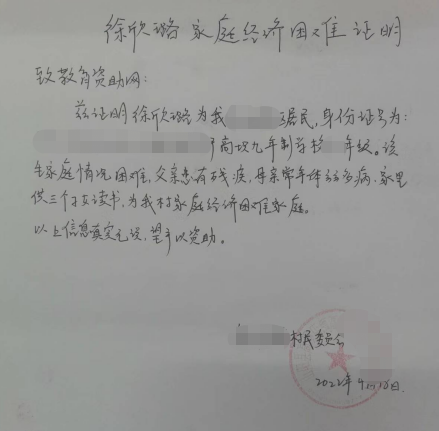 徐欣璐家庭经济困难证明
致教育资助网：
兹证明徐欣璐为我 居民，身份证号为：
高坎九年制学校 年级。该
生家庭情况困难，父亲患有残疾，母亲常年体弱多病，家里
供三个孩子读书，为我村家庭经济困难家庭。
以上信息真实无误，望予以资助。
村民委员会
2022年4月16日